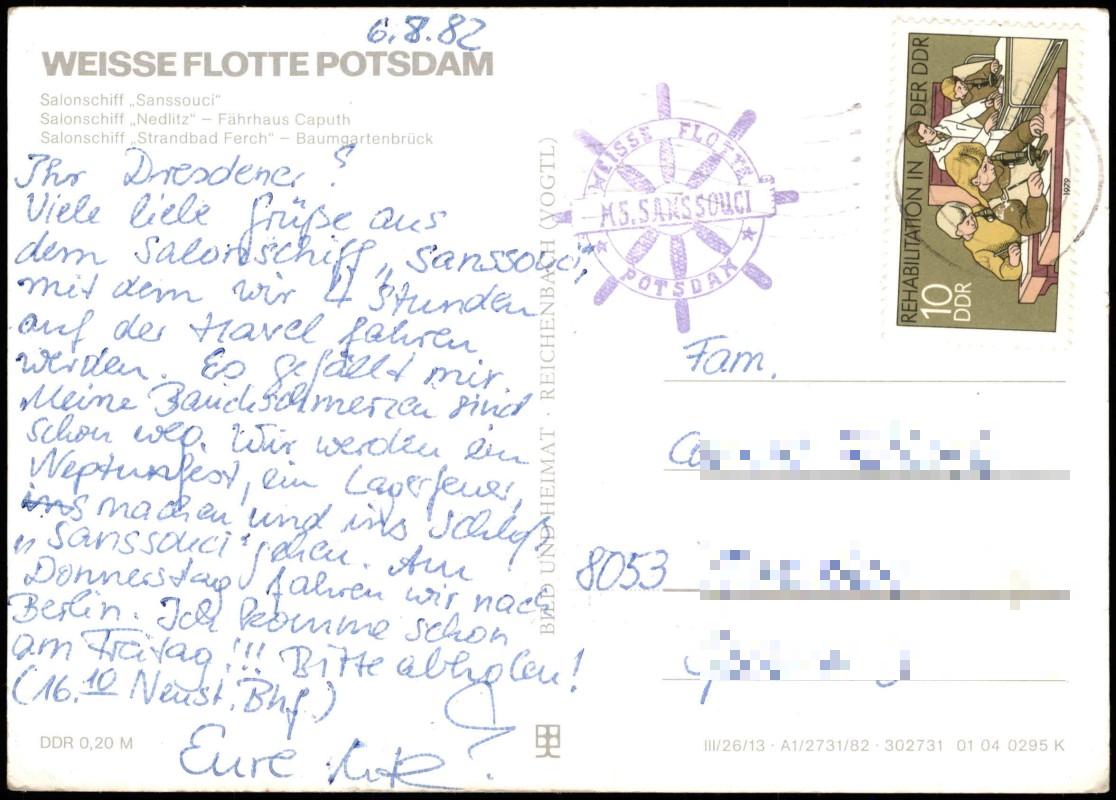 6.8.82
WEISSE FLOTTE POTSDAM
Salonschiff „Sanssouci“
Salonschiff „Nedlitz“ – Fährhaus Caputh
Salonschiff „Strandbad Ferch“ – Baumgartenbrück
Ihr Dresdener!
Viele liebe Grüße aus
dem Salonschiff „Sanssouci“,
mit dem wir 4 Stunden
auf der Havel fahren
werden. Es gefällt mir.
Meine Bauchschmerzen sind
schon weg. Wir werden ein
Neptunfest, ein Lagerfeuer,
machen und ins Schloß
„Sanssouci“ gehen. Am
Donnerstag fahren wir nach
Berlin. Ich komme schon
am Freitag!!! Bitte abholen!
(16.10 Neust. Bhf.)
Eure
DDR 0,20 M
BILD UND HEIMAT · REICHENBACH (VOGTL)
WEISSE FLOTTE
MS. SANSSOUCI
POTSDAM
REHABILITATION IN DER DDR
10
DDR
1979
Fam.
8053
III/26/13 · A1/2731/82 · 302731 01 04 0295 K